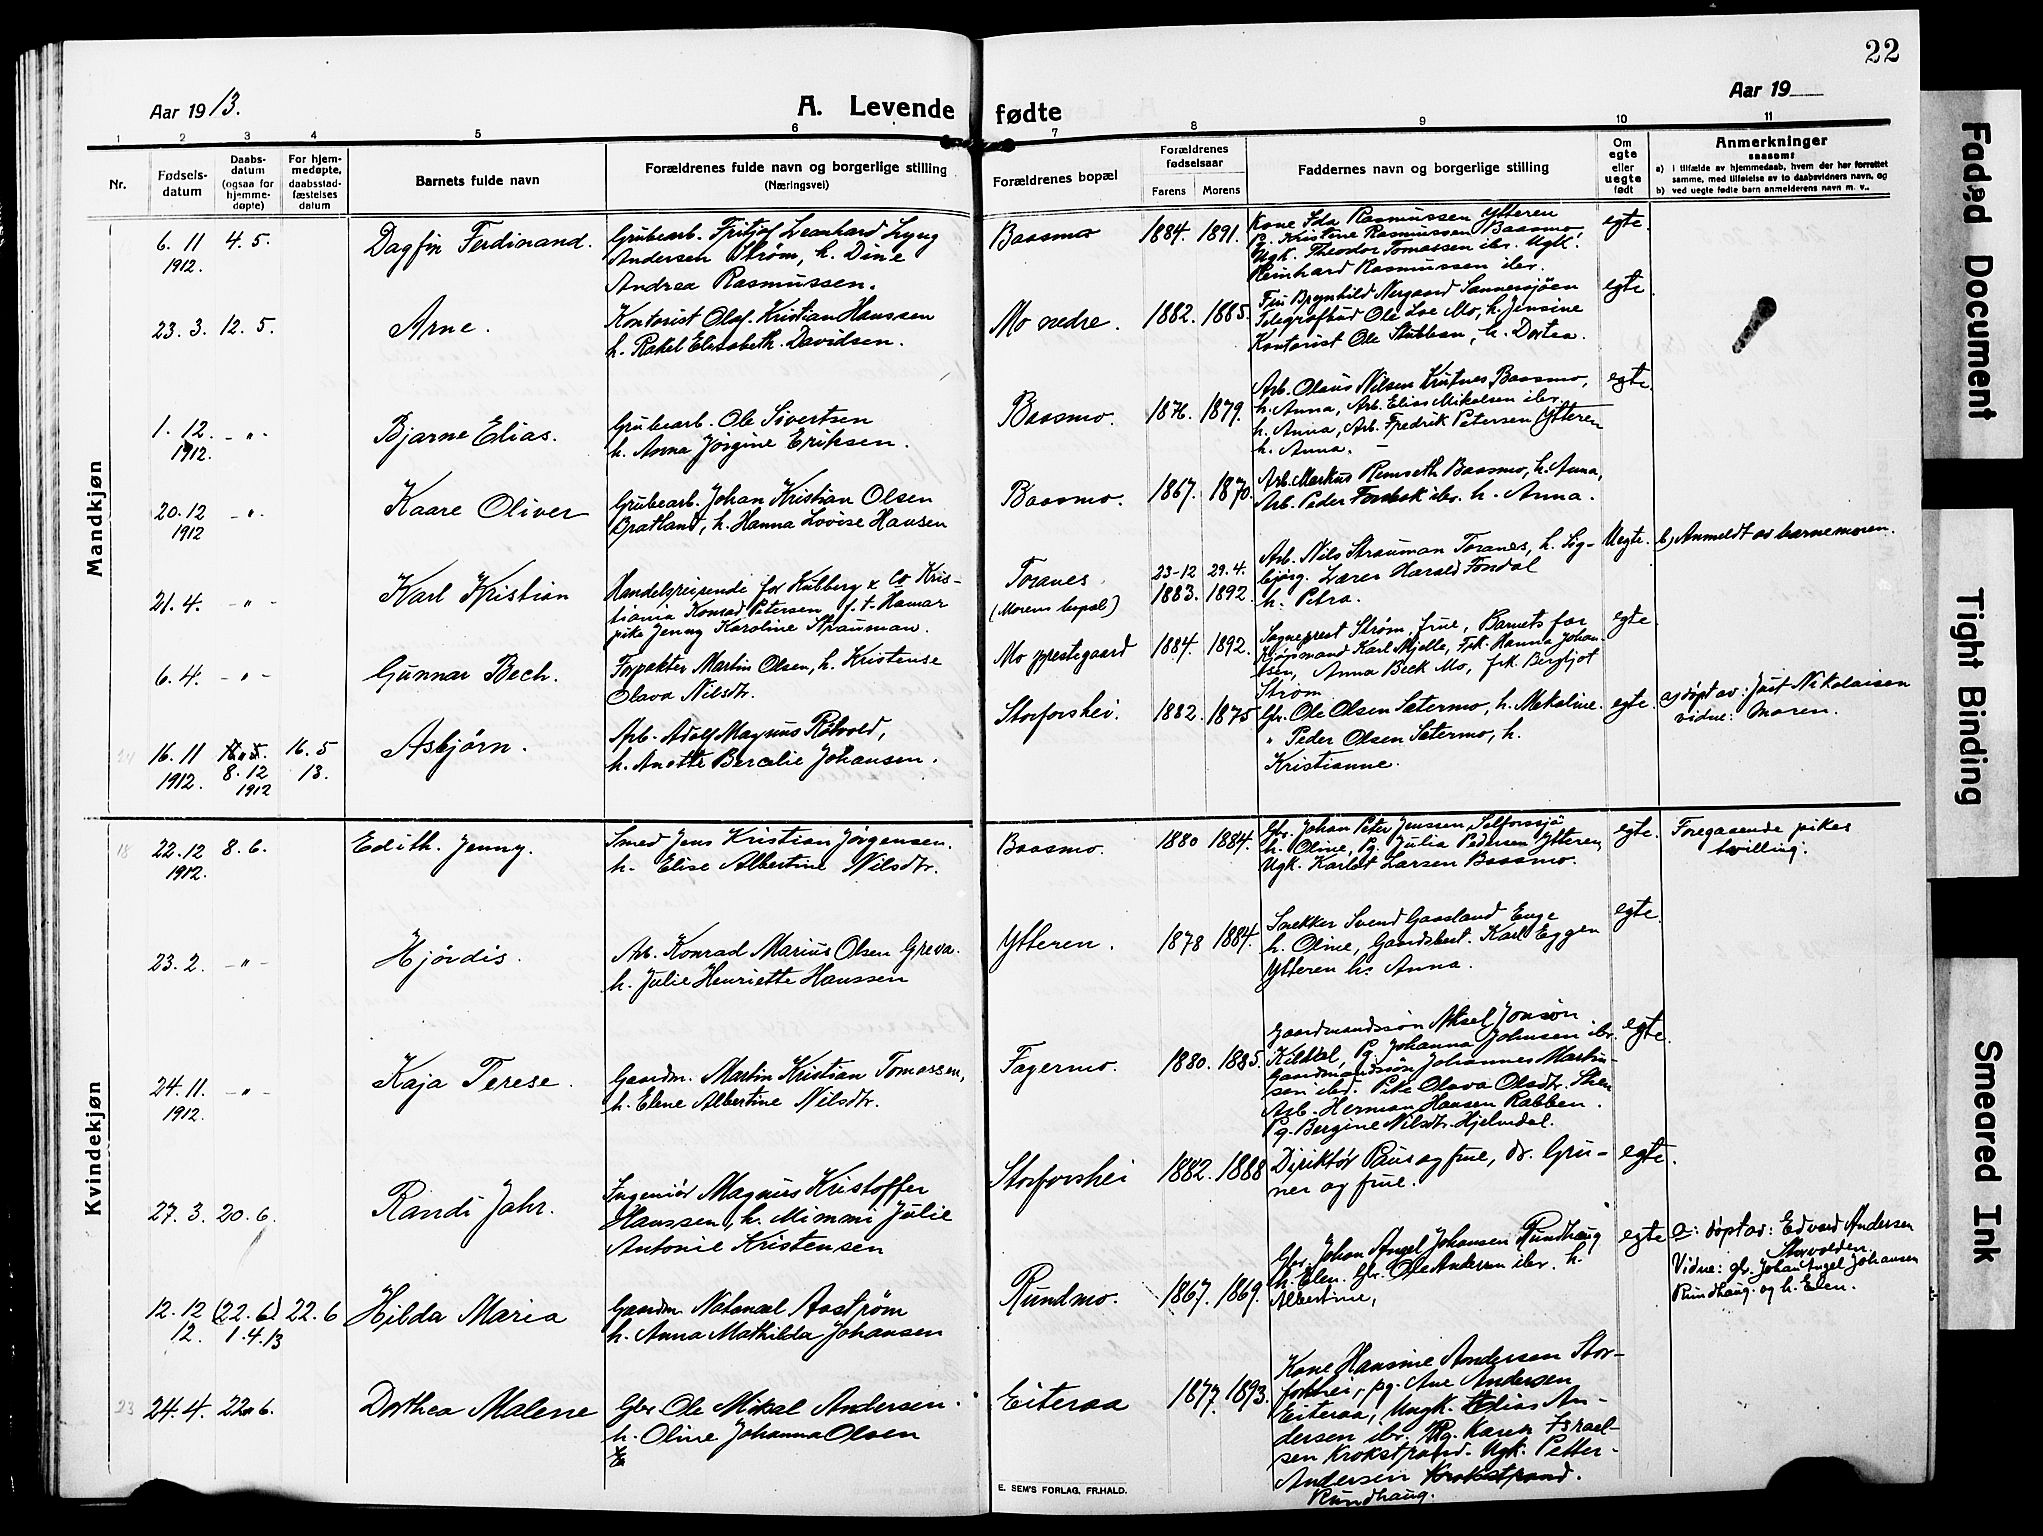 22
Aar 1913.
A. Levende fødte
Aar 19
1 2 3 4 5 6 7 8 9 10 11
Nr.
Fødsels-
datum
Daabs-
datum
(ogsaa for
hjemme-
døpte)
For hjem-
medøpte,
daabsstad-
fæstelses
datum
Barnets fulde navn
Forældrenes fulde navn og borgerlige stilling
(Næringsvei)
Forældrenes bopæl
Forældrenes
fødselsaar
Farens Morens
Faddernes navn og borgerlige stilling
Om
egte
eller
uegte
født
Anmerkninger
saasom:
a) i tilfælde av hjemmedaab, hvem der har forrettet
samme, med tilføielse av to daabsvidners navn, og
b) ved uegte fødte barn anmelderens navn m. v..
Mandkjøn
6. 11
1912.
4. 5.
Dagfin Ferdinand.
Grubearb. Fritjof Leonhard Lyng
Andersen Strøm, h. Dine
Andrea Rasmussen.
Baasmo
1884. 1891.
Kone Ida Rasmussen Ytteren
Pg. Kristine Rasmussen Baasmo,
Ugk. Theodor Tomassen ibr. Ugk.
Reinhard Rasmussen ibr.
egte
23. 3. 12. 5.
Arne.
Kontorist Olaf Kristian Hanssen
h. Rakel Elisabeth Davidsen.
Mo nedre.
1882. 1885.
Fru Brynhild Nergaard Sannessjøen
Telegrafbud Ole Loe Mo, h. Jensine
Kontorist Ole Stubban, h. Dortea.
egte
1. 12.
1912.
-„-
Bjarne Elias.
Grubearb. Ole Sivertsen
h. Anna Jørgine Eriksen.
Baasmo.
1876. 1879.
Arb. Olaus Nilsen Krutnes Baasmo,
h. Anna, Arb. Elias Mikelsen ibr.
h. Anna, Arb. Fredrik Petersen Ytteren
h. Anna.
egte
20. 12
1912
-„-
Kaare Oliver
Grubearb. Johan Kristian Olsen
Bratland, h. Hanna Lovise Hansen
Baasmo.
1867. 1870.
Arb. Markus Remseth Baasmo, h. Anna,
Arb. Peder Fonbek ibr. h. Anna.
21. 4. -„-
Karl Kristian
Handelsreisende for Kubberg & Co Kris-
tiania Konrad Petersen f. t. Hamar
pike Jenny Karoline Strauman.
Toranes
(Morens bopæl)
23-12
1883.
29. 4.
1892.
Arb. Nils Strauman Toranes, h. Sig-
bjørg. Lærer Harald Fondal
h. Petra.
Uegte.
b) Anmeldt av barnemoren.
6. 4. -„-
Gunnar Bech.
Forpakter Martin Olsen, h. Kristense
Olava Nilsdtr.
Mo prestegaard
1884. 1892.
Sogneprest Strøm, frue, Barnets far
Kjøpmand Karl Mjelle, Frk. Hanna Johan-
sen, Anna Beck Mo, frk. Bergljot
Strøm
egte
16. 11
1912.
8. 12
1912
16. 5
13.
Asbjørn.
Arb. Adolf Magnus Røtvold,
h. Anette Bercelie Johansen.
Storforshei.
1882. 1875
Gbr. Ole Olsen Sætermo, h. Mekaline.
„ Peder Olsen Sætermo, h.
Kristianne.
egte.
a) døpt av: Just Nikolaisen
vidne: Moren.
Kvindekjøn
18
22. 12
1912.
8. 6.
Edith. Jenny.
Smed Jens Kristian Jørgensen.
h. Elise Albertine Nilsdtr.
Baasmo.
1880 1884.
Gbr. Johan Peter Jenssen, Selforssjø
h. Oline, Pg. Julia Pedersen Ytteren,
Ugk. Karlot Larsen Baasmo.
egte.
Foregaaende pikes
tvilling.
23. 2. -„-
Hjørdis.
Arb. Konrad Marius Olsen Greva.
h. Julie Henriette Hanssen
Ytteren.
1878 1884.
Snekker Svend Gaasland Enge
h. Oline, Gaardsbest. Karl Eggen
Ytteren h. Anna.
egte.
24. 11.
1912.
-„-
Kaja Terese.
Gaardm. Martin Kristian Tomassen,
h. Elene Albertine Nilsdtr.
Fagermo.
1880. 1885.
Gaardmandssøn Aksel Jonsøn
Kildal, Pg. Johanna Johnsen ibr.
Gaardmandssøn Johannes Martin-
sen ibd. Pike Olava Olsdtr. Sten
Arb. Herman Hansen Rabben.
Pg. Bergine Nilsdtr. Hjelmdal.
egte.
27. 3. 20. 6.
Randi Jahr.
Ingeniør Magnus Kristoffer
Hanssen, h. Mimmi Julie
Antonie Kristensen
Storforshei
1882. 1888
Direktør Paus og frue, dr. Gru-
ner og frue.
egte.
12. 12
12.
(22. 6)
1. 4. 13
22. 6
Hilda Maria
Gaardm. Natanael Aastrøm
h. Anna Mathilda Johansen
Rundmo.
1867. 1869.
Gbr. Johan Angel Johansen Rundhaug
h. Elen. Gbr. Ole Andersen ibr. h.
Albertine,
egte
a: døpt av: Edvard Andersen
Storvolden.
Vidne: gbr. Johan Angel Johansen
Rundhaug og h. Elen.
23
24. 4. 22. 6.
Dorthea Malene
Gbr. Ole Mikal Andersen.
h. Oline Johanna Olsen
Eiteraa
1877. 1893.
Kone Hansine Andersen Stor-
forshei, pg. Ane Andersen
Eiteraa, Ungk. Elias An-
dersen ibr. Pg. Karen Israel-
sen Krokstrand. Ugk. Petter
Andersen Krokstrand.
Rundhaug.
E. SEM'S FORLAG, FR.HALD.
Faded Document
Tight Binding
Smeared Ink